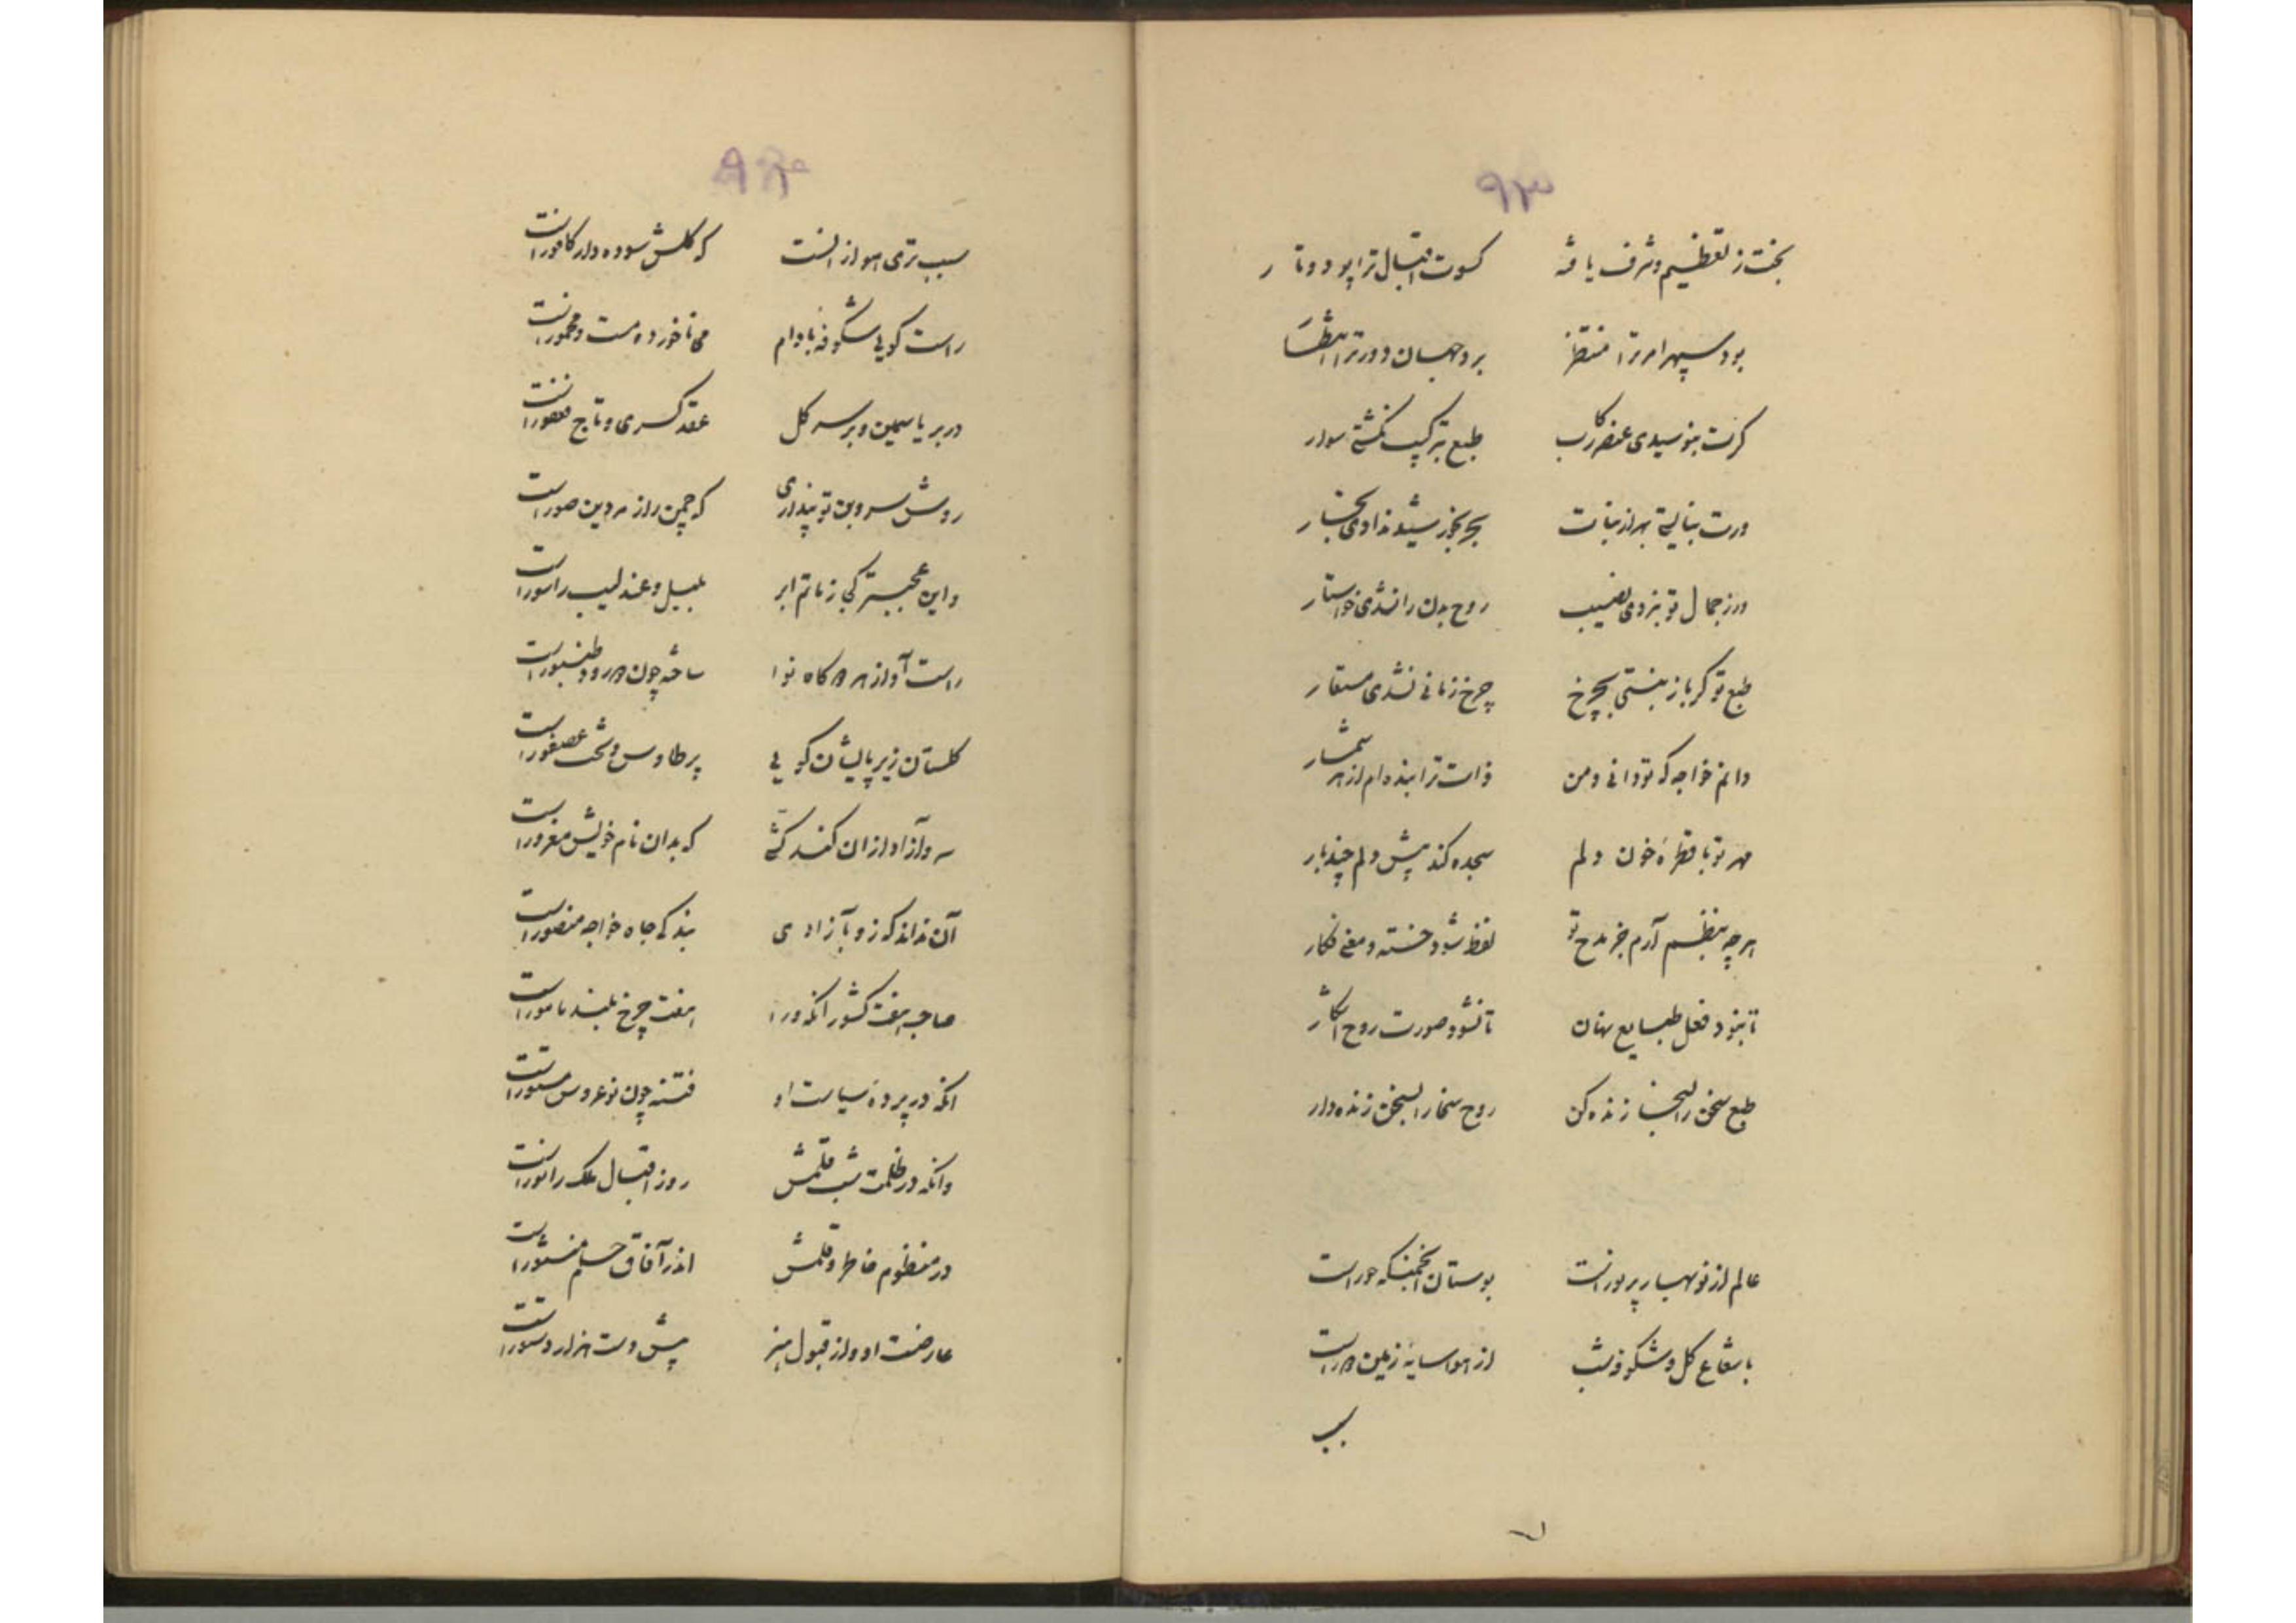 ۹۳
بخت ز تعظیم و شرف یافته کسوت اقبال ترا پود و تار
بود سپهر امر ترا منتظر برد جهان دور ترا انتظار
گر نبوسیدی عنصر رکاب طبع بترکیب نگشتی سوار
ورت بنانی نه به از نبات بحر بجز شیوه ندادی بخار
ور ز جمال تو نبردی نصیب روح بدن را نشدی خواستار
طبع تو گر باز نبستی بچرخ چرخ زمانی نشدی مستقار
دانم خواجه که تو دانی و من ذات ترا بنده ام از هر شمار
مهر تو با قطره خون دلم سجده کند پیش دلم چند بار
هر چه بنظم آرم جز مدح تو لفظ شود خسته و معنی فکار
تا نبود فعل طبایع نهان تا نشود صورت روح آشکار
طبع سخن را بسخا زنده کن روح سخا را بسخن زنده دار
عالم از نوبهار پر نورانست بوستان انجمنگه حورانست
با شعاع گل و شکوفه شب از هوا سایه زمین دورانست
سبب
۹۴
سبب تری هوا ز انست که گلش سوده دار کافورانست
راست گویی شکوفه بادام می ناخورده مست و مخمورانست
در بر یاسمین و بر سر گل عقد کسری و تاج فغفورانست
روش سرو بن تو پنداری که چمن را ز مه دین صوراست
و این عجبتر کی ز ماتم ابر بلبل و عندلیب را سوراست
راست آواز هر دو گاه نوا ساخته چون دو رود و طنبوراست
گلستان زیر پایشان گویی پر طاوس و تخت عصفوراست
سرو آزاد از آن کند کشی که بدان نام خویش مغروراست
آن نداند که زو بآزادی بندگی جاه خواجه منصوراست
صاحب هفت کشور انکه ورا هفت چرخ بلند ماموراست
انکه در پرده سیاست او فتنه چون نوعروس مستوراست
وانکه در ظلمت شب قلمش روز اقبال ملک را نورانست
در منظوم خاطر و قلمش اندر آفاق حسام منشوراست
عارضست او و از قبول هنر پیش دست هزار دستوراست